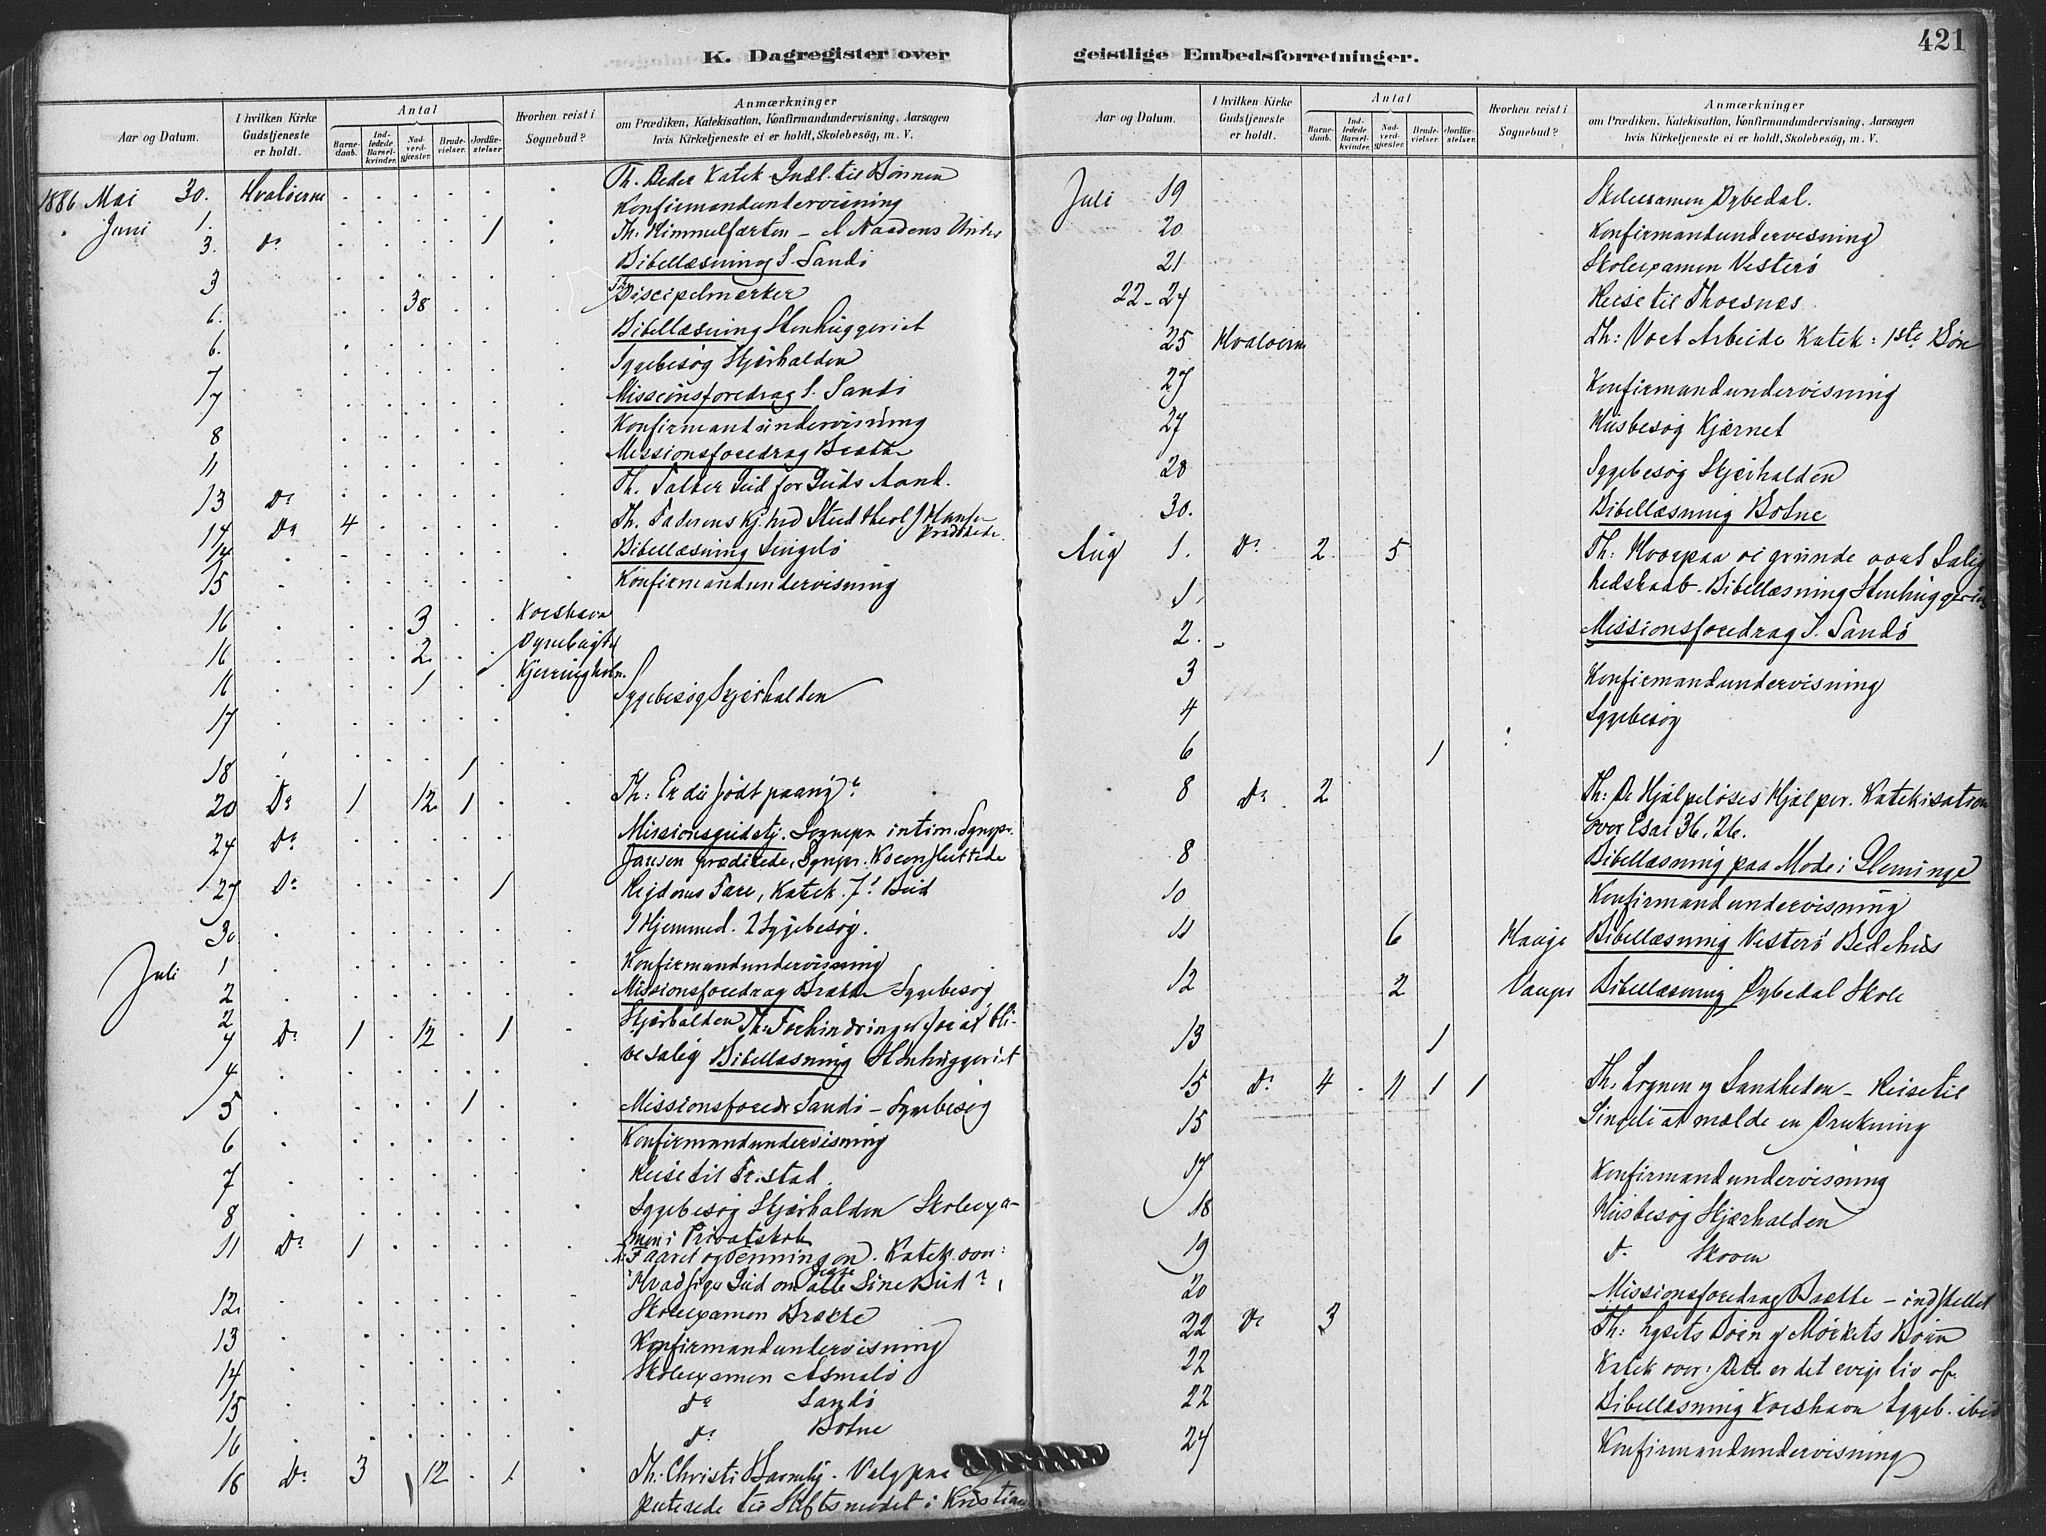 K. Dagregister over
Aar og Datum.
I hvilken Kirke Gudstjeneste er holdt.
Antal
Barnedaab.
Indledede Barselkvinder.
Nadverdgjæster.
Brudevielser.
Jordfæstelser
Hvorhen reist i Sognebud?
Anmærkninger
om Prædiken, Katekisation, Konfirmandundervisning, Aarsagen
hvis Kirketjeneste ei er holdt, Skolebesøg, m. V.
1886 Mai 30. Hvaløerne Th. Beder Katek Indl. til Bønnen
Juni 1. Konfirmandundervisning
3. Do 1 Th. Himmelfarten – Naadens Under
3 Bibellæsning S. Sandö
6. 38 Th Discipelmærker
6. Bibellæsning Stenhuggeriet
7 Sygebesøg Skjærhalden
7 Missionsforedrag S. Sandö
8 Konfirmandundervisning
11 Missionsforedrag Brætte
13 Do Th. Taler Gud for Guds Aand.
14 Do 4 Th. Faderens Kj. hed Stud theol J Hansen
Prædikede.
14 Bibellæsning Singelö
15 Konfirmandundervisning
16 3 Korshavn
16 2 Dynebugten
16 1 Kjerringholm.
17 Sygebesøg Skjærhalden
18 1
20 Do 1 12 1 Th: Er du født paany?
24 Do Missionsgudstj. Sognepr intim. Sognepr.
Jansen prædikede, Sognepr. sluttede
27 Do 1 Rigdoms Fare, Katek. 7de Bud
30 I Hjemmed. 2 Sygebesøg.
Juli 1 Konfirmandundervisning
2 Missionsforedrag Brætte Sygebesøg
2 Skjærhalden
4 Do 1 12 1 Th: Forhindringer for at bli-
ve salig
4 Bibellæsning Stenhuggeriet
5 1 Missionsforedr Sandö – Sygebesøg
6 Konfirmandundervisning
7 Reise til Fr.stad.
8 Sygebesøg Skjærhalden Skoleexa-
men i Privatskole
11 Do 1 Th: Faaret og Penningen. Katek. over:
Hvad siger Gud om alle disse Sine Bud?
12 Skoleexamen Brætte
13 Konfirmandundervisning
14 Skoleexamen Asmalö
15 do Sandö
16 do Botne
18 Do 3 12 1 Th. Christi Valg paa
puterede til Stiftsmødet i Kristian
geistlige Embedsforretninger.
421
Aar og Datum.
I hvilken Kirke Gudstjeneste er holdt.
Antal
Barnedaab.
Indledede Barselkvinder.
Nadverdgjæster.
Brudevielser.
Jordfæstelser.
Hvorhen reist i Sognebud?
Anmærkninger
om Prædiken, Katekisation, Konfirmandundervisning, Aarsagen
hvis Kirketjeneste ei er holdt, Skolebesøg, m. V.
Juli 19 Skoleexamen Dybedal.
20 Konfirmandundervisning
21 Skoleexamen Vesterö
22–24 Reise til Thorsnes
25 Hvaløerne Th: Vort Arbeide Katek: 1ste Bön
27 Konfirmandundervisning
27 Husbesøg Kjærnet
28 Sygebesøg Skjærhalden
30. Bibellæsning Botne
Aug 1. Do 2 5 Th: Hvorpaa vi grunde vort Salig
hedshaab.
1. Bibellæsning Stenhuggeriet
2. Missionsforedrag S. Sandö
3 Konfirmandundervisning
4 Sygebesøg
6 1
8 Do 2 Th: De Hjælpeløses Hjælper. Katekisation
over Esai 36, 26.
8 Bibellæsning paa Mode i Gleminge
10 Konfirmandundervisning
11 6 Hauge Bibellæsning Vesterö Bedehus
12 2 Bibellæsning Dybedal Skole
13 1
15 Do 4 11 1 1 Th. Løgnen og Sandheden – Reise til
15 Singelö at mælde en Drukning
17 Konfirmandundervisning
18 Husbesøg Skjærhalden
19 do Skoven
20 Missionsforedrag Brætte – indstillet
22 Do 3 Th: Lysets Börn og Mörkets Börn
22 Katek over: Dette er det evige Liv of.
22 Bibellæsning Korshavn Sygeb. ibid
24 Konfirmandundervisning